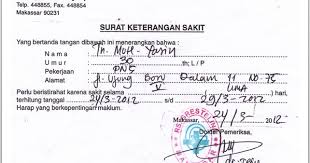 Telp. 448855, Fax. 448854
Makassar 90231
SURAT KETERANGAN SAKIT
Yang bertanda tangan dibawah ini menerangkan bahwa :
N a m a : Tn. Muh. Yasin
U m u r : 30 th; L / P
Pekerjaan : PNS
Alamat : Jl Ujung Bori Dalam 11 No 75
Perlu beristirahat karena sakit selama V LIMA
terhitung tanggal 24/3-2012 s/d 29/3-2012
Harap yang berkepentingan maklum.
Makassar, 24/3-2012
Dokter Pemeriksa,